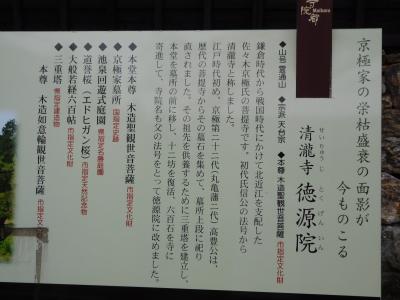 京極家の栄枯盛衰の面影が
今ものこる
せいりゅうじ とくげんいん
清瀧寺 徳源院
◆山号 霊通山 ◆宗派 天台宗 ◆本尊 木造聖観世音菩薩 市指定文化財
鎌倉時代から戦国時代にかけて北近江を支配した
佐々木京極氏の菩提寺です。初代氏信公の法号から
清瀧寺と称しました。
江戸時代初め、京極第二十二代(丸亀藩二代)高豊公は、
歴代の菩提寺からその墓石を集めて、墓所上段に祀り
直されました。その祖先を供養するために三重塔を建立し、
本堂を墓所の前に移し、十二坊を復活、六百石を寺に
寄進して、寺院名も父の法号をとって徳源院に改めました。
◆本堂本尊 木造聖観世音菩薩 市指定文化財
◆京極家墓所 国指定史跡
◆池泉回遊式庭園 県指定名勝庭園
◆道誉桜(エドヒガン桜) 市指定天然記念物
◆大般若経六百帖 市指定文化財
◆三重塔 県指定建造物
本尊 木造如意輪観世音菩薩 市指定文化財